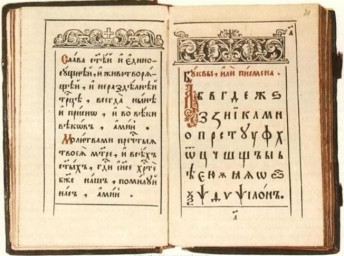 Слава ст҃ѣй и едино
сущнѣй, и животворѧ
щей, и нераздѣлнѣй
трⷪ҇цѣ, всегда нынѣ
и приснѡ, и во вѣки
вѣкѡвъ, аминь
Молитвами прⷭ҇тыѧ
твоеѧ мт҃ре, и всѣхъ
ст҃ыхъ, гдⷭ҇и іиⷭ҇е хрⷭ҇тѐ
бж҃е нашъ, помилуй
насъ, аминь
Буквы, или писмена
А Б В Г Д Е Ж Ѕ
З Ꙁ Н І К Л М Н
О П Р С Т У Ꙋ Ф Х
Ѿ Ц Ч Ш Щ Ъ Ы Ь
Ѣ Є Ю Ѫ Ѧ Ꙗ Ѡ
Ѯ Ѱ Д У Ѱ ІЛОН